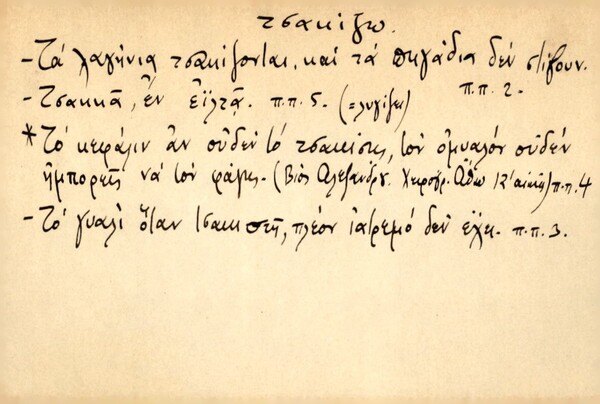 τσακίζω.
- Τά λαγήνια τσακίζονται, καί τά πηγάδια δέν στίβουν.
π.π. 2.
- Τσακκᾷ, ἐν εἱλτᾷ. π.π. 5. (= λυγίζει)
* Τό κεφάλιν ἄν οὐδέν τό τσακίσῃς, τόν ὀμυαλόν οὐδέν
ἠμπορεῖς νά τόν φάγῃς. (Βίος Ἀλεξάνδρου. Χειρογρ. Ἄθω ΙΣ' αἰῶνος) π.π. 4
- Τό γυαλί ὅταν τσακιστῇ, πλέον ἰατρεμό δέν ἔχει. π.π. 3.